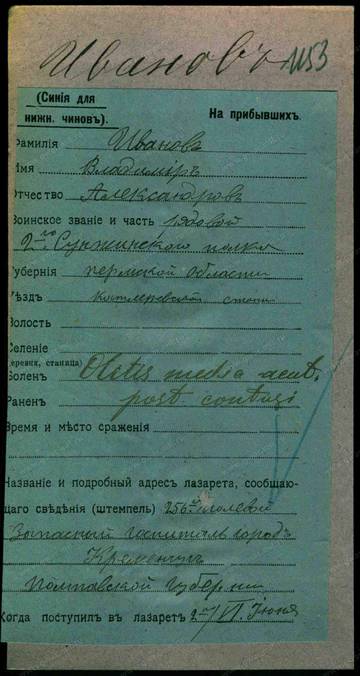 Ивановъ 1153
(Синія для
нижн. чиновъ).
На прибывшихъ.
Фамилія Ивановъ
Имя Владиміръ
Отчество Александровъ
Воинское званіе и часть рядовой
2го Сунжинского полка
Губернія области
Уѣздъ
Волость
Селеніе
(деревня, станица)
Боленъ Otitis media acut.
Раненъ post contusi
Время и мѣсто сраженія
Названіе и подробный адресъ лазарета, сообщаю-
щаго свѣдѣнія (штемпель) 256й полевой
Запасный госпиталь городъ
Кременчугъ
Полтавской губерніи
Когда поступилъ въ лазаретъ 2го/VI. Іюня